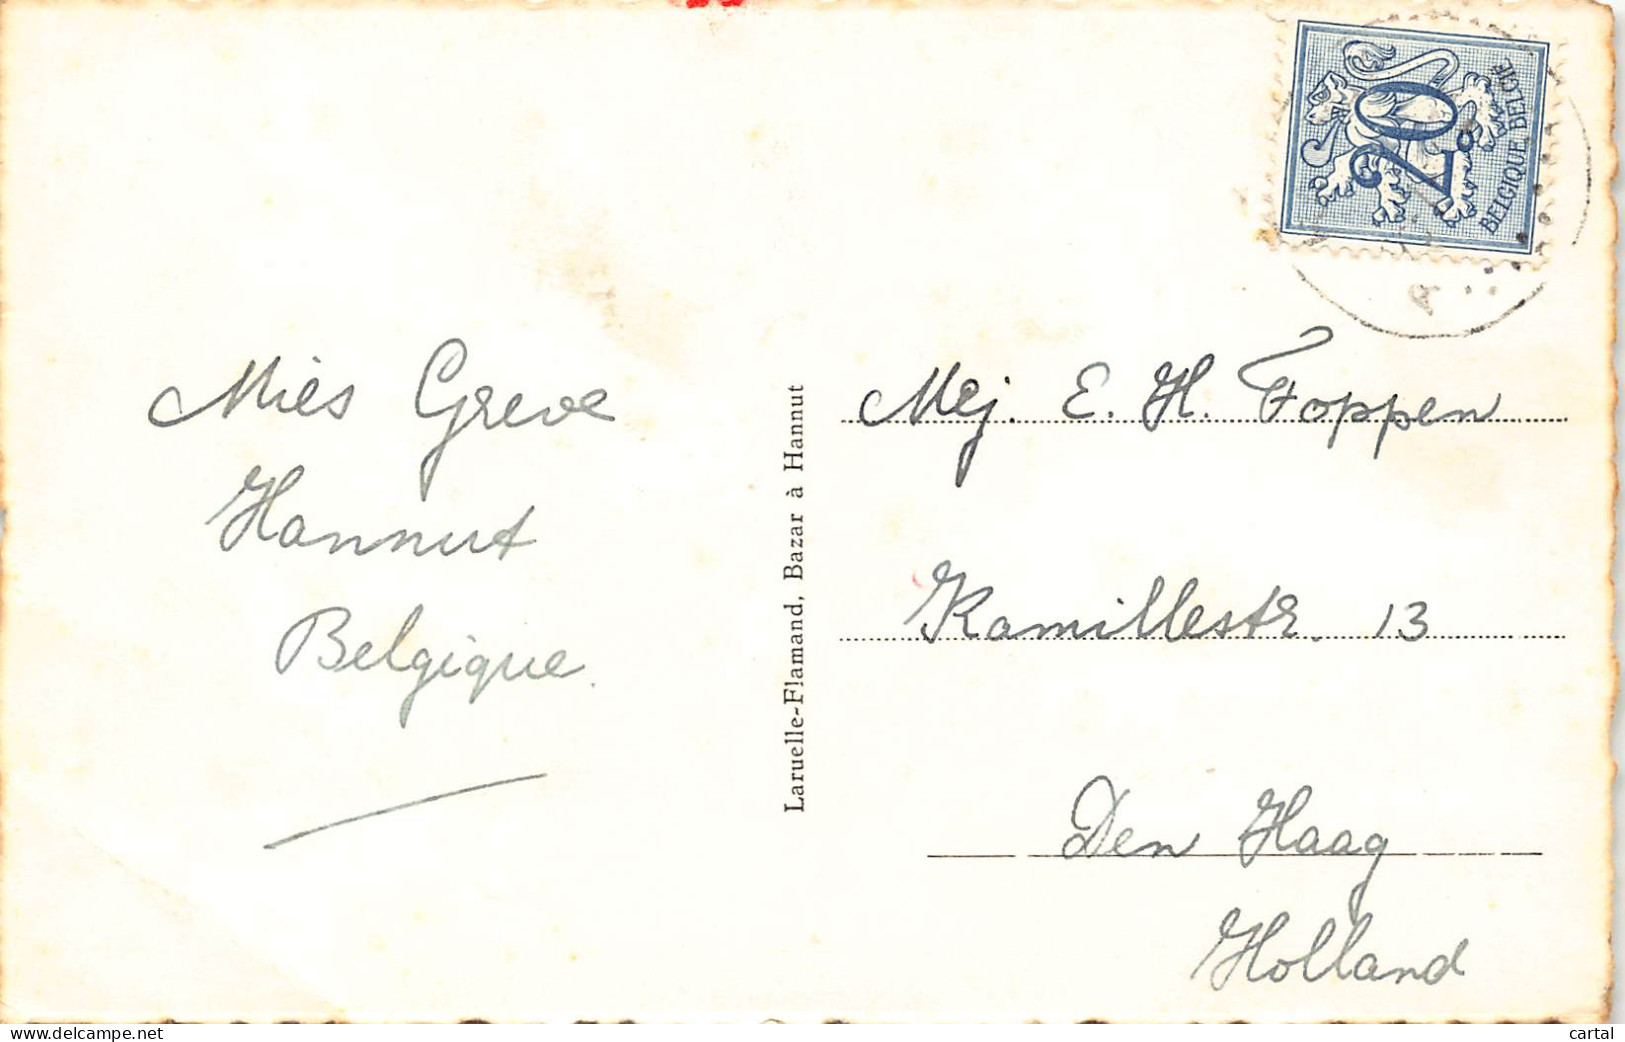 Miès Greve
Hannut
Belgique.
Laruelle-Flamand, Bazar à Hannut
20
BELGIQUE BELGIE
A
Mej. E. H. Foppen
Kamillestr. 13
Den Haag
Holland
www.delcampe.net
cartal